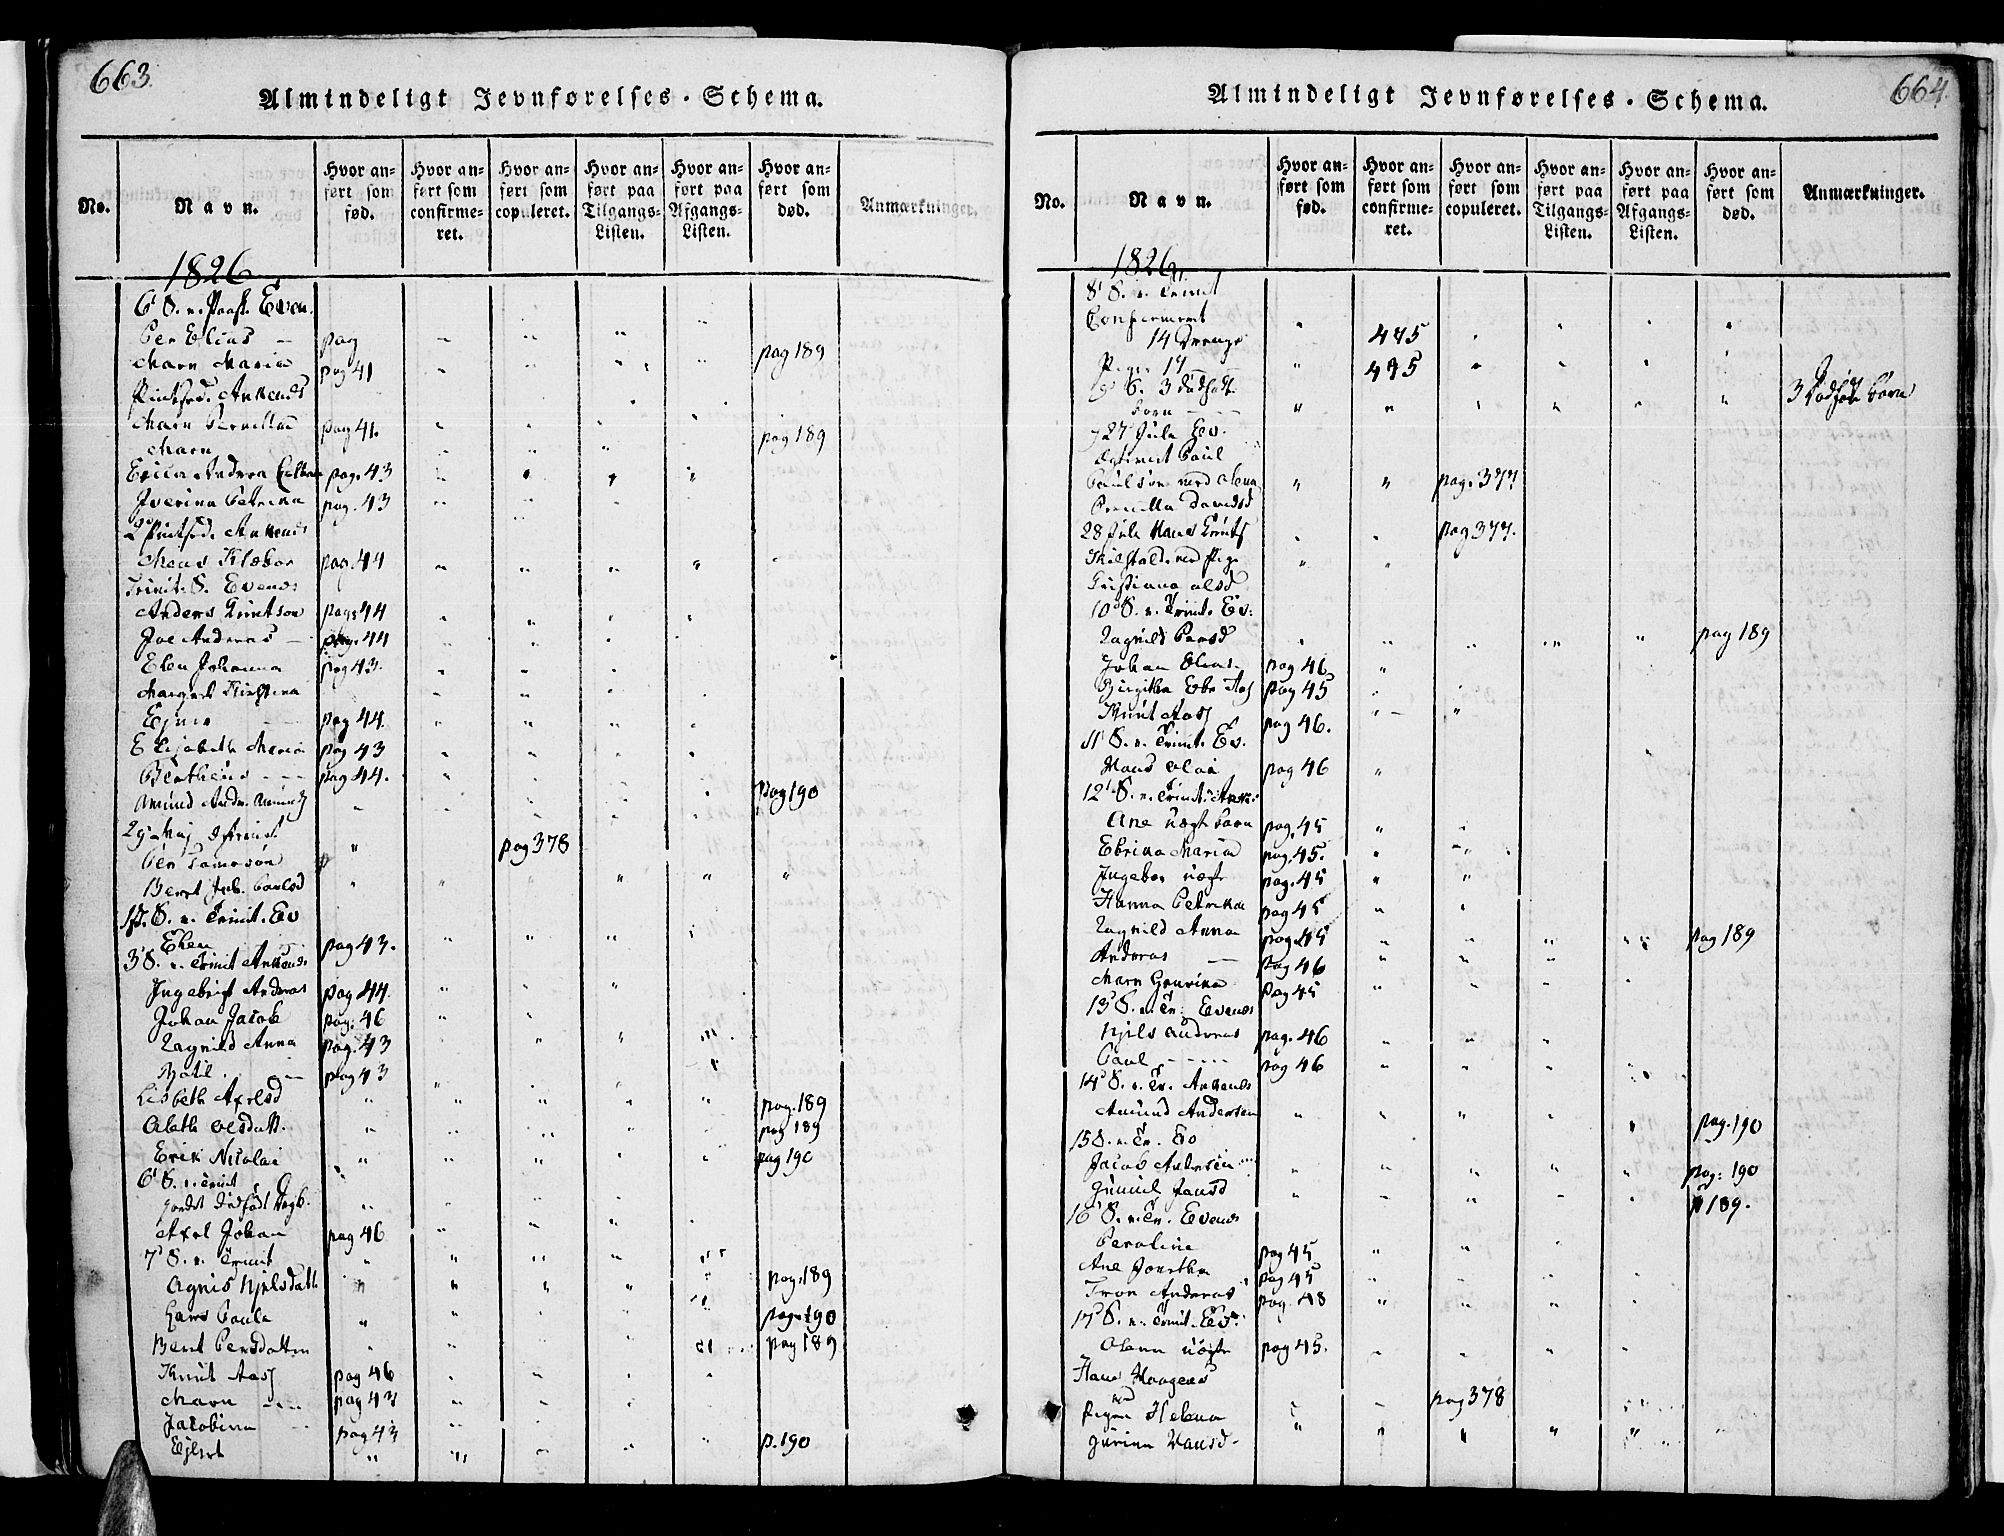 663.
Almindeligt Jevnførelses-Schema.
No. Navn. Hvor anført som fød. Hvor anført som confirmeret. Hvor anført som copuleret. Hvor anført paa Tilgangs-Listen. Hvor anført paa Afgangs-Listen. Hvor anført som død. Anmærkninger.
1826
6' S. e. Paask. Even.
Per Elias — pag
pag 189
Maren Maria pag 41
Maren Pernilla pag 41.
pag 189
Maren
Erica Andrea pag. 43
Iverina Petrina pag. 43
Mons Klæboe pag. 44
Trinit. S. Evenes
Anders Knutson pag. 44
Joe Andreas — pag. 44
Elen Johanna pag 43.
Margret Kirstina
Ejner pag 44.
Elisabeth Maria pag 43
Berthine — pag 44.
pag 190
Amund Andr.
29 Maj
pag 378
Per Tomeson
Beret
S. e. Trinit. Ev
Elen pag 43.
3' S. e. Trinit Ankenes
Ingebrigt Andreas pag 44.
Johan Jacob pag. 46
Ragnild Anna pag. 43
Botil. — pag 43
Lisbeth Axelsd pag. 189
Aleth Olesdatt. pag 189
Erik Nicolai pag 190
6' S. e. Trinit
Axel Johan pag 46
7' S. e. Trinit
Agnis Njelsdatt pag. 189
Hans Paule pag. 190
Beret Persdatter pag 189
Knut Aas pag 46
Maren pag 43
Jacobina pag 43
Ejlert p. 190
664.
Almindeligt Jevnførelses-Schema.
No. Navn. Hvor anført som fød. Hvor anført som confirmeret. Hvor anført som copuleret. Hvor anført paa Tilgangs-Listen. Hvor anført paa Afgangs-Listen. Hvor anført som død. Anmærkninger.
1826
8' S. e. Trinit
Confirmeret
14 Drenge 475
Piger 17 475
3 dødfødt
børn 3 Dødfødt børn
27 Jule Ev.
Egteviet Paul
Paulson med Anna pag. 377
Pernilla Davidsd
28 Jule Hans Knuts pag 377.
med Pige
Cristiana Olsd
10' S. e. Trinit. Ev:
Ragnild Persd pag 189
Johan Elias. pag 46
Birgitha Ebr Aas pag 45
Knut Aas pag 46.
11' S. e. Trinit. Ev.
Hans Olai pag 46
12' S. e. Trinit. Ank:
Ane Uægt barn pag. 45
Ebrika Maria pag. 45.
Ingebor uægt pag. 45
Hanna Petrikka pag 45
Ragnild Anna pag. 45 pag 189
Andreas — pag 46
Maren Gurina pag 45
13' S. e. Tr: Evenes
Njels Andreas pag. 46
Paul - - - - - pag 46
14' S. e. Tr. Ankenes
Amund Andersen pag. 190
15 S. e. Tr. Ev
Jacob Andersen pag: 190
Gunnil Jansd p 189.
16' S. e. Tr. Evenes
Peroline pag 45
Ane Dorthea pag 45
Tron Andreas pag. 48
17' S. e. Trinit. Ev:
Olava uægt pag 45.
Hans Haagens
med pag 378
Pigen Helena
Gurina Hansd-